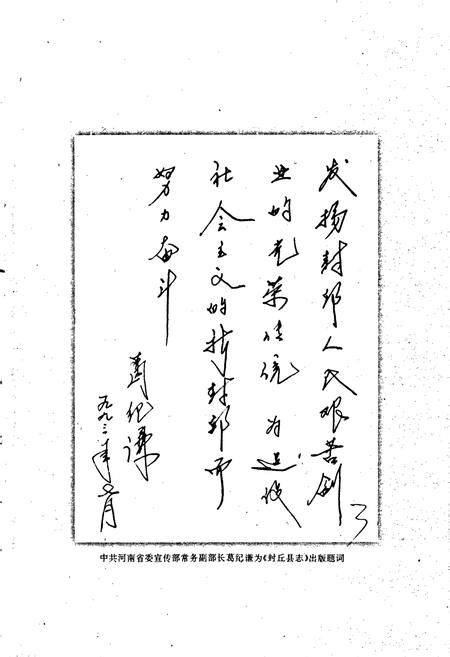 发扬封邱人民艰苦创
业的光荣传统为建设
社会主义的新封邱而
努力奋斗
葛纪谦
一九九三年 月
中共河南省委宣传部常务副部长葛纪谦为《封丘县志》出版题词